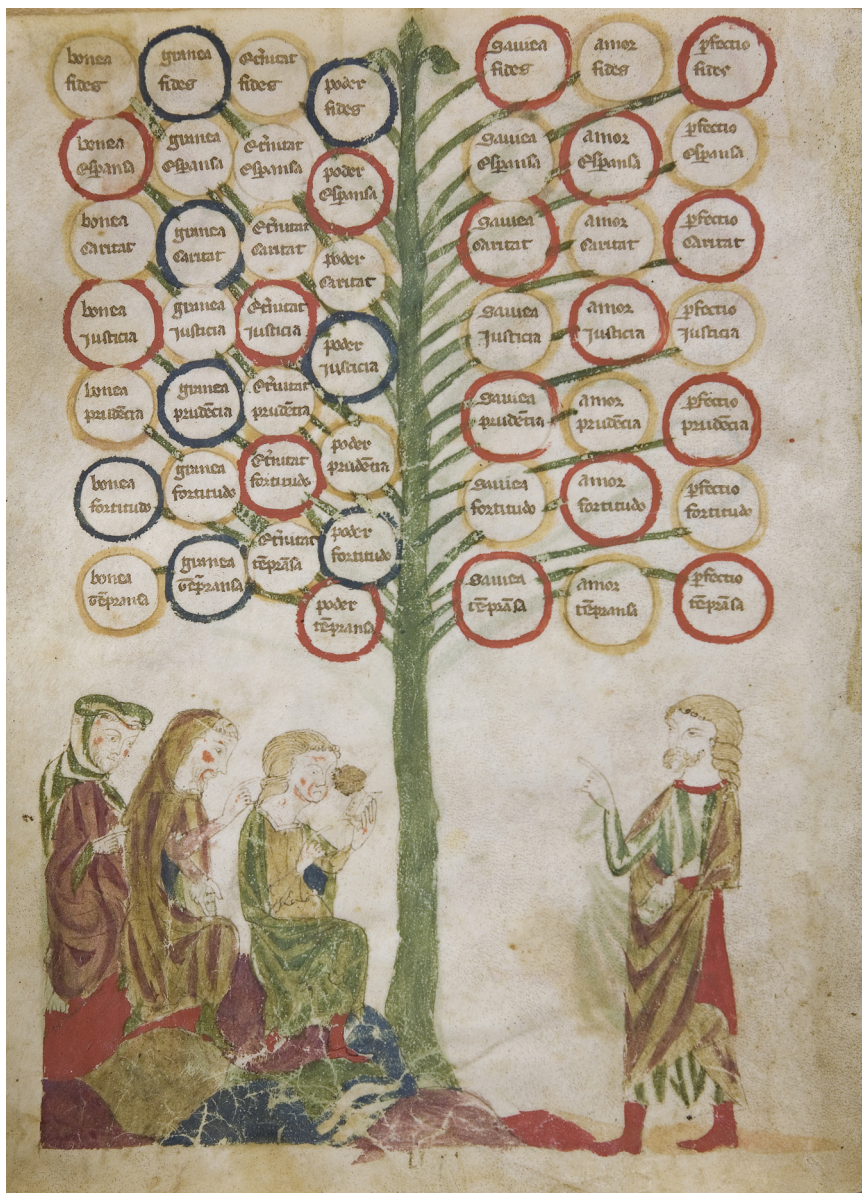 bonea
fides
granea
fides
Et̃nitat
fides
poder
fides
saviea
fides
amor
fides
ꝑfectio
fides
bonea
esꝑansa
granea
esꝑansa
Et̃nitat
esꝑansa
poder
esꝑansa
saviea
esꝑansa
amor
esꝑansa
ꝑfectio
esꝑansa
bonea
caritat
granea
caritat
Et̃nitat
caritat
poder
caritat
saviea
caritat
amor
caritat
ꝑfectio
caritat
bonea
justicia
granea
justicia
Et̃nitat
justicia
poder
justicia
saviea
justicia
amor
justicia
ꝑfectio
justicia
bonea
prudẽcia
granea
prudẽcia
Et̃nitat
prudẽcia
poder
prudẽcia
saviea
prudẽcia
amor
prudẽcia
ꝑfectio
prudẽcia
bonea
fortitudo
granea
fortitudo
Et̃nitat
fortitudo
poder
fortitudo
saviea
fortitudo
amor
fortitudo
ꝑfectio
fortitudo
bonea
tẽpransa
granea
tẽpransa
Et̃nitat
tẽprãsa
poder
tẽpransa
saviea
tẽprãsa
amor
tẽpransa
ꝑfectio
tẽprãsa